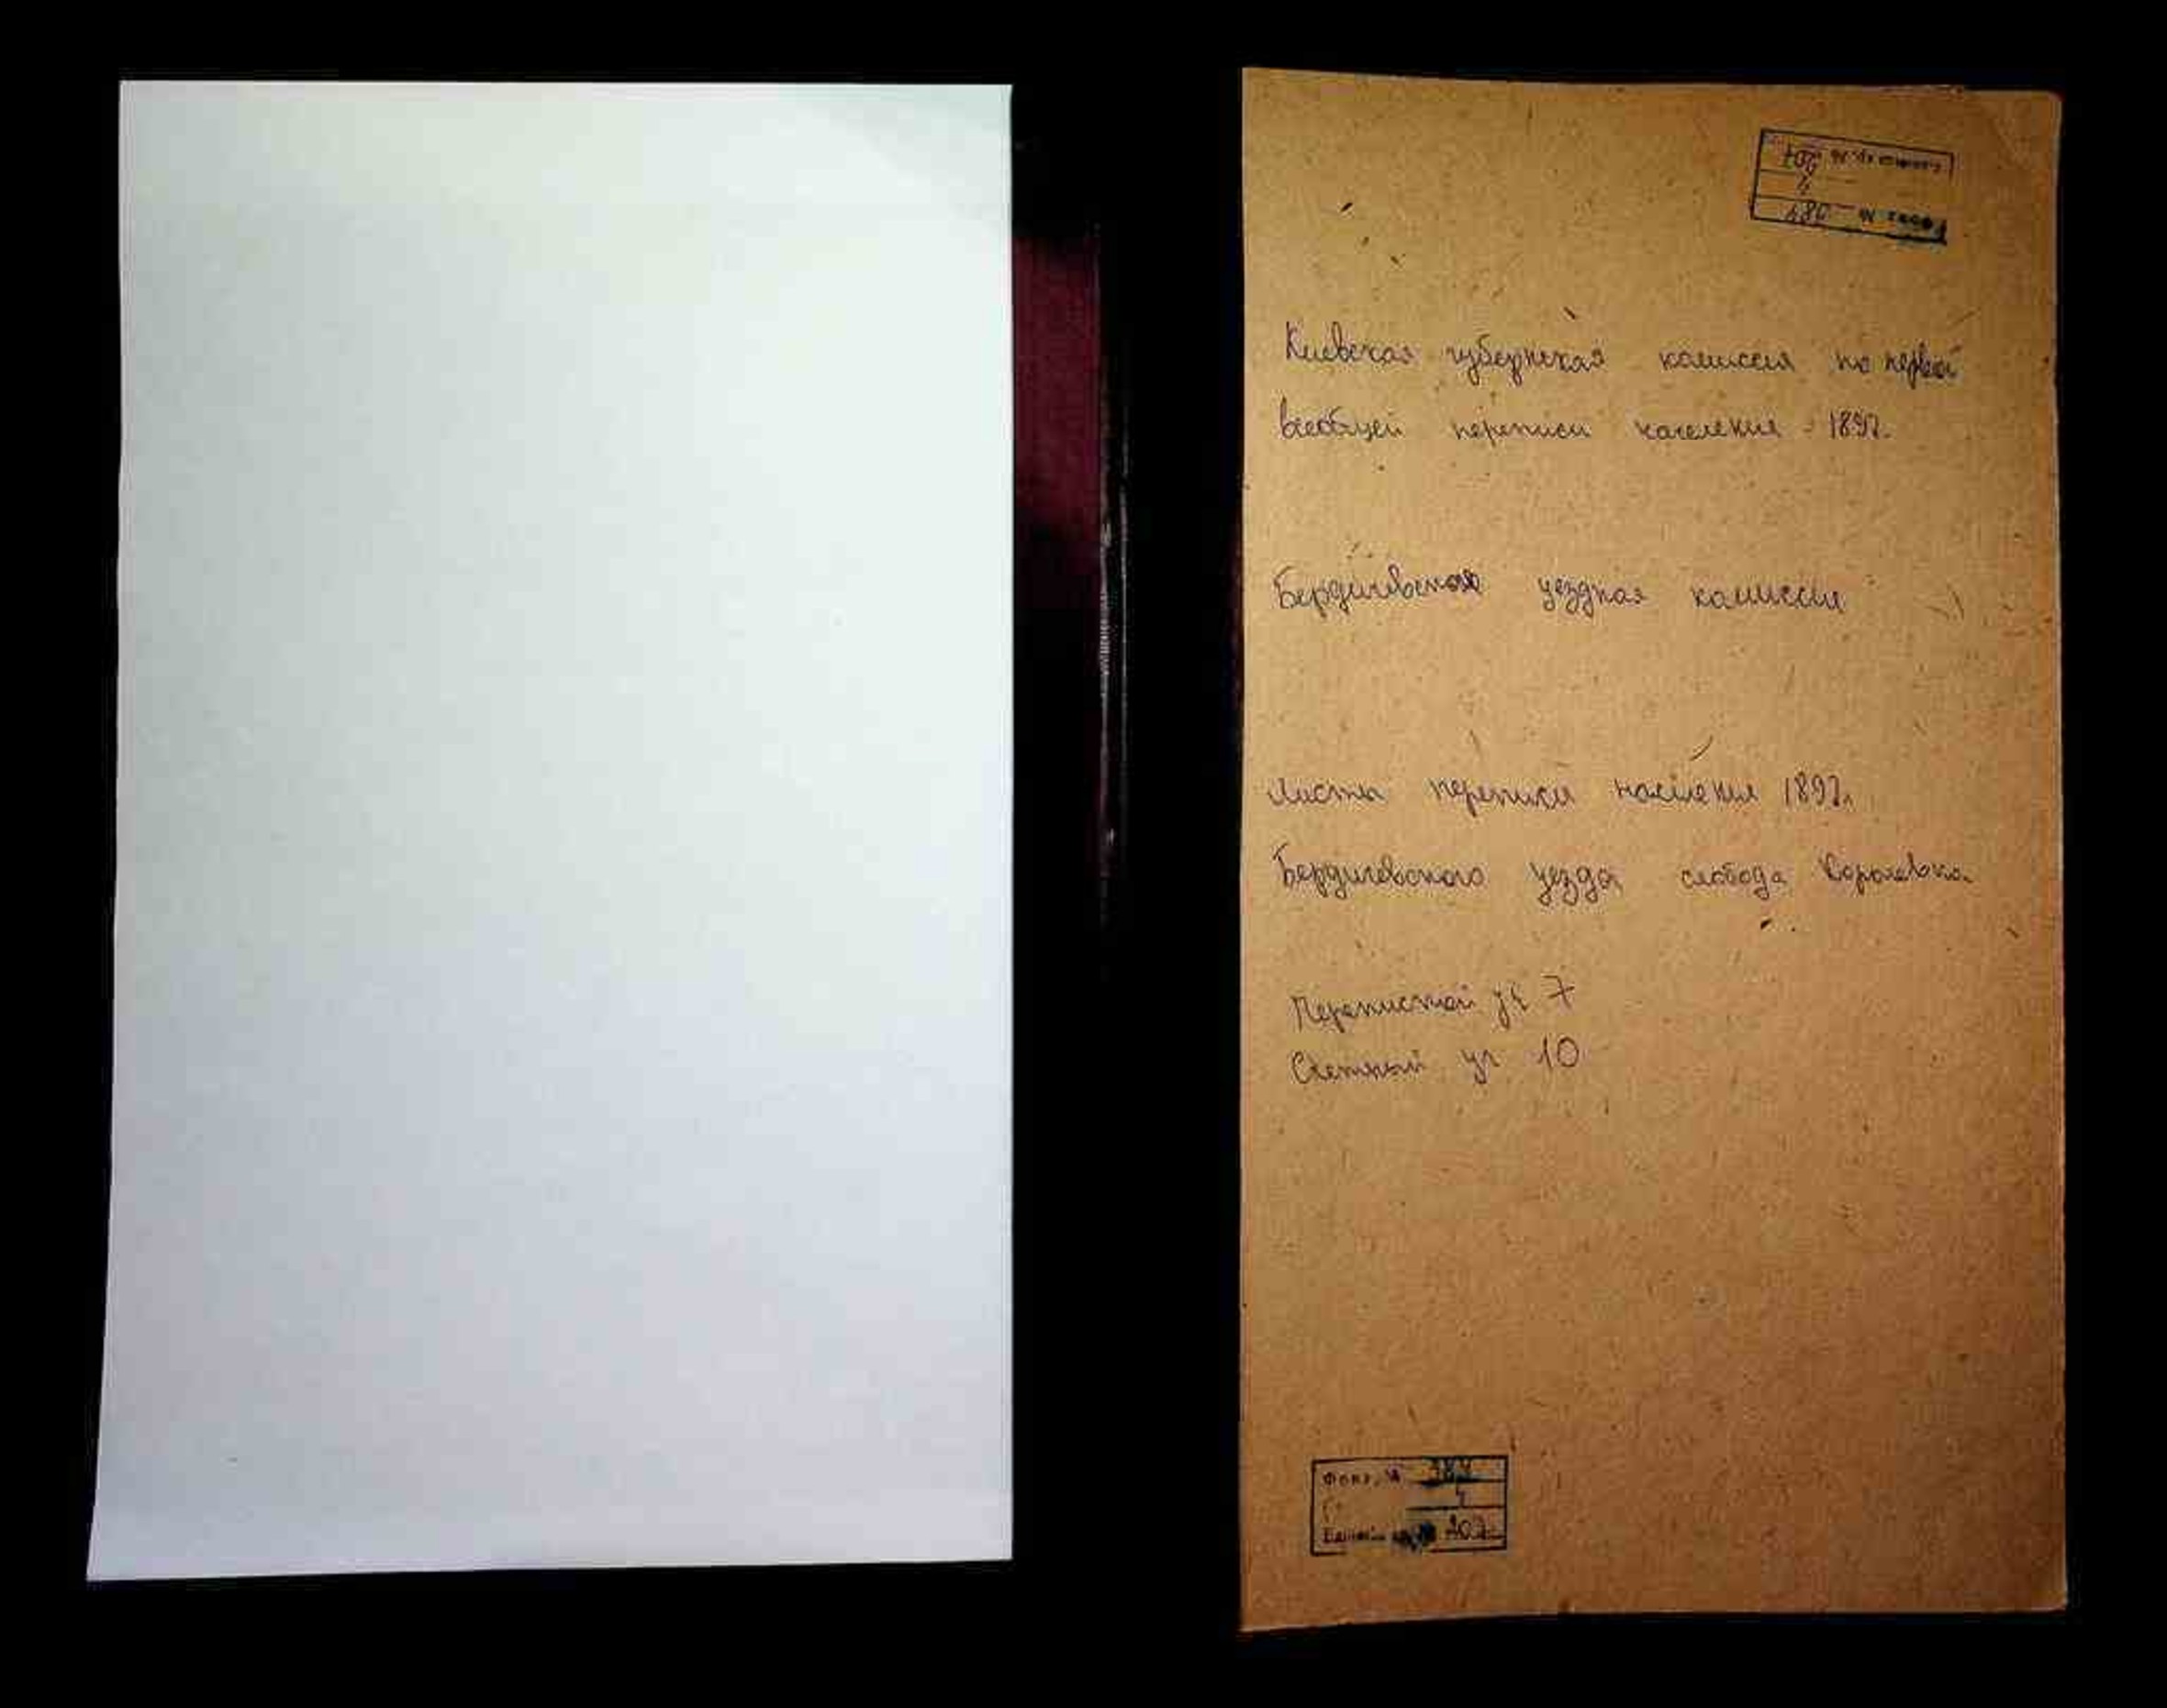 Киевская губернская комиссия по первой
всеобщей переписи населения 1897.
Бердичевская уездная комиссия
Листы переписи населения 1897г.
Бердичевского уезда слобода Королевка
Переписной уч 7
Счетный уч 10
Фонд №
4
Единиц